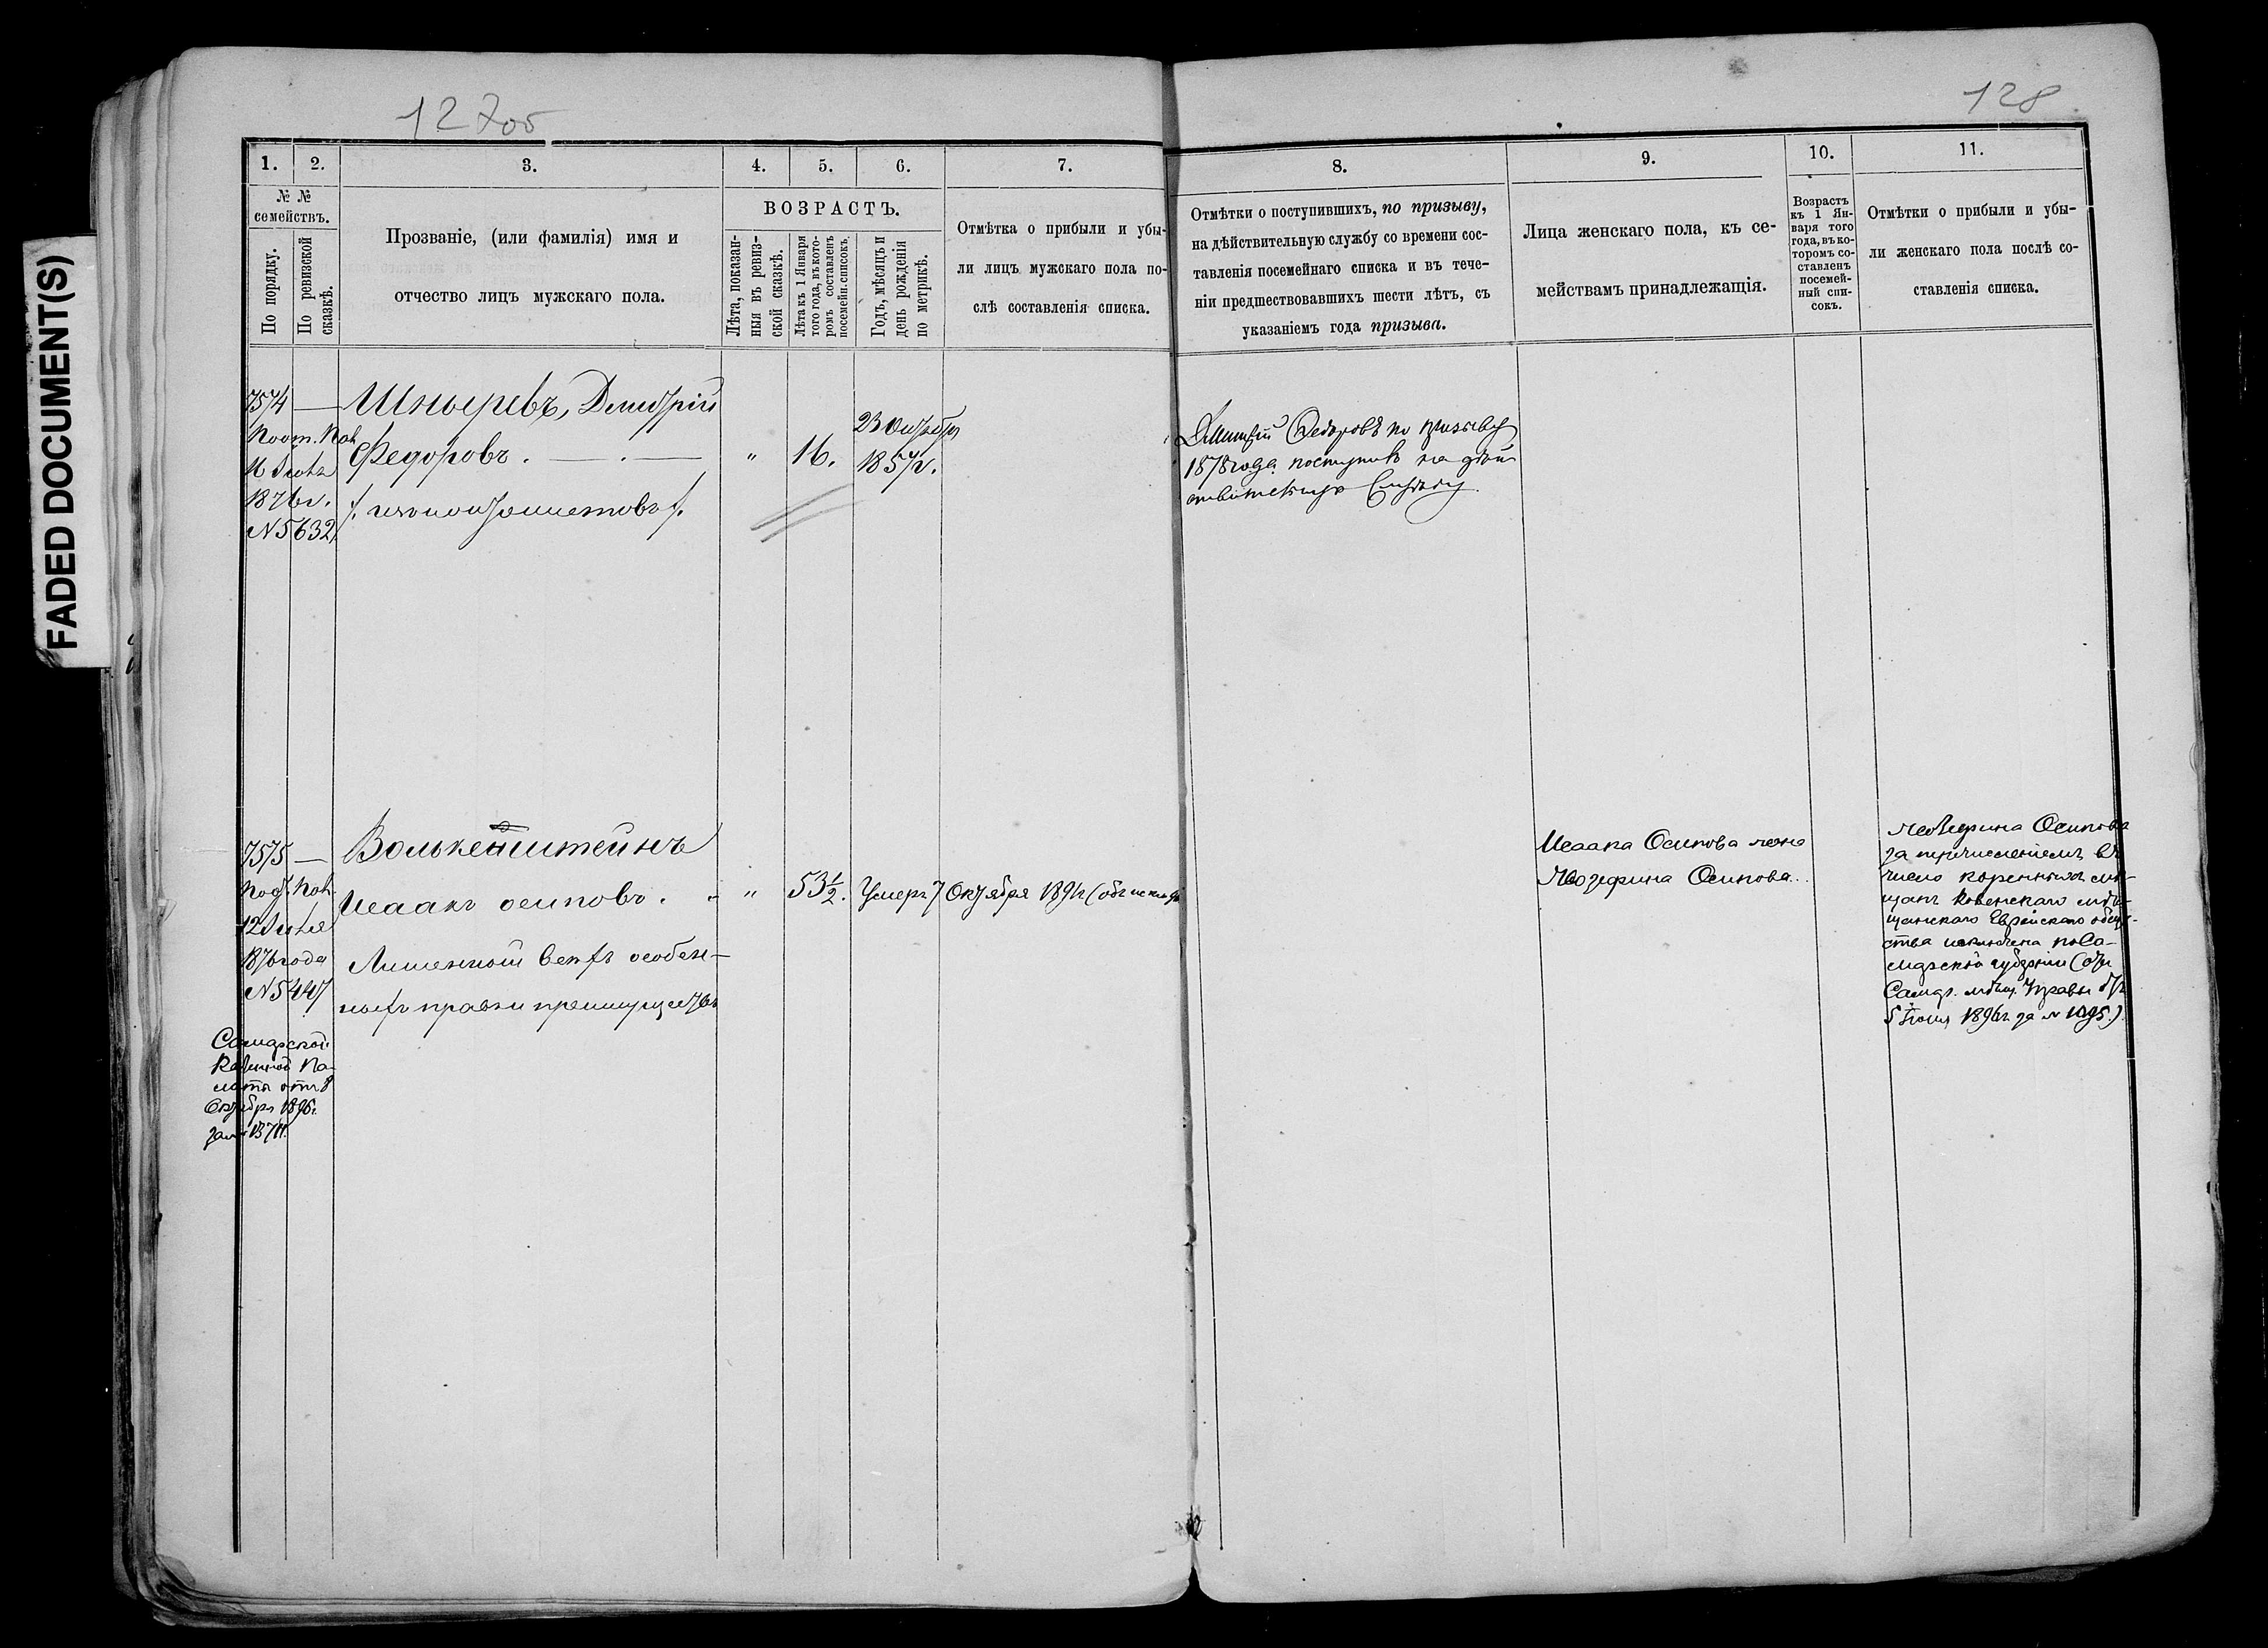 FADED DOCUMENT(S)
127об
128
1.
2.
3.
4.
5.
6.
7.
8.
9.
10.
11.
№ №
семействъ.
По порядку.
По ревизской
сказкѣ.
Прозваніе, (или фамилія) имя и
отчество лицъ мужскаго пола.
ВОЗРАСТЪ.
Лѣта, показан-
ныя въ ревиз-
ской сказкѣ.
Лѣта къ 1 Января
того года, въ кото-
ромъ составленъ
посемейн. списокъ.
Годъ, мѣсяцъ и
день рожденія
по метрикѣ.
Отмѣтка о прибыли и убы-
ли лицъ мужскаго пола по-
слѣ составленія списка.
Отмѣтки о поступившихъ, по призыву,
на дѣйствительную службу со времени сос-
тавленія посемейнаго списка и въ тече-
ніи предшествовавшихъ шести лѣтъ, съ
указаніемъ года призыва.
Лица женскаго пола, къ се-
мействамъ принадлежащія.
Возрастъ
къ 1 Ян-
варя того
года, въ ко-
торомъ со-
ставленъ
посемей-
ный спи-
сокъ.
Отмѣтки о прибыли и убы-
ли женскаго пола послѣ со-
ставленія списка.
7574 —
1876г.
N5632
Дмитрій
Федоровъ. — . —
"
16.
23 Октября
1857г.
Дмитрій Федоровъ по призыву
1878 года поступилъ на дѣй-
ствительную службу.
7575 —
12 Іюля
1876 года
N5447
Самарской
Казенной Па-
латы отъ 8
Октября 1896г.
Волькенштейнъ
Исаакъ осиповъ.
Лишенный всѣхъ особен-
ныхъ правъ и преимуществъ
"
53½.
Умеръ 7 Октября 189
Исаака Осипова жена
Жозефина Осипова.
Жозефина Осипова
за перечисленіемъ въ
число коренныхъ мѣ-
щанъ Ковенскаго мѣ-
щанскаго Еврейскаго общ-
ства исключена по Са-
марской губерніи (отн
Самар. мѣщ. Управы отъ
5 Іюня 1896г за №